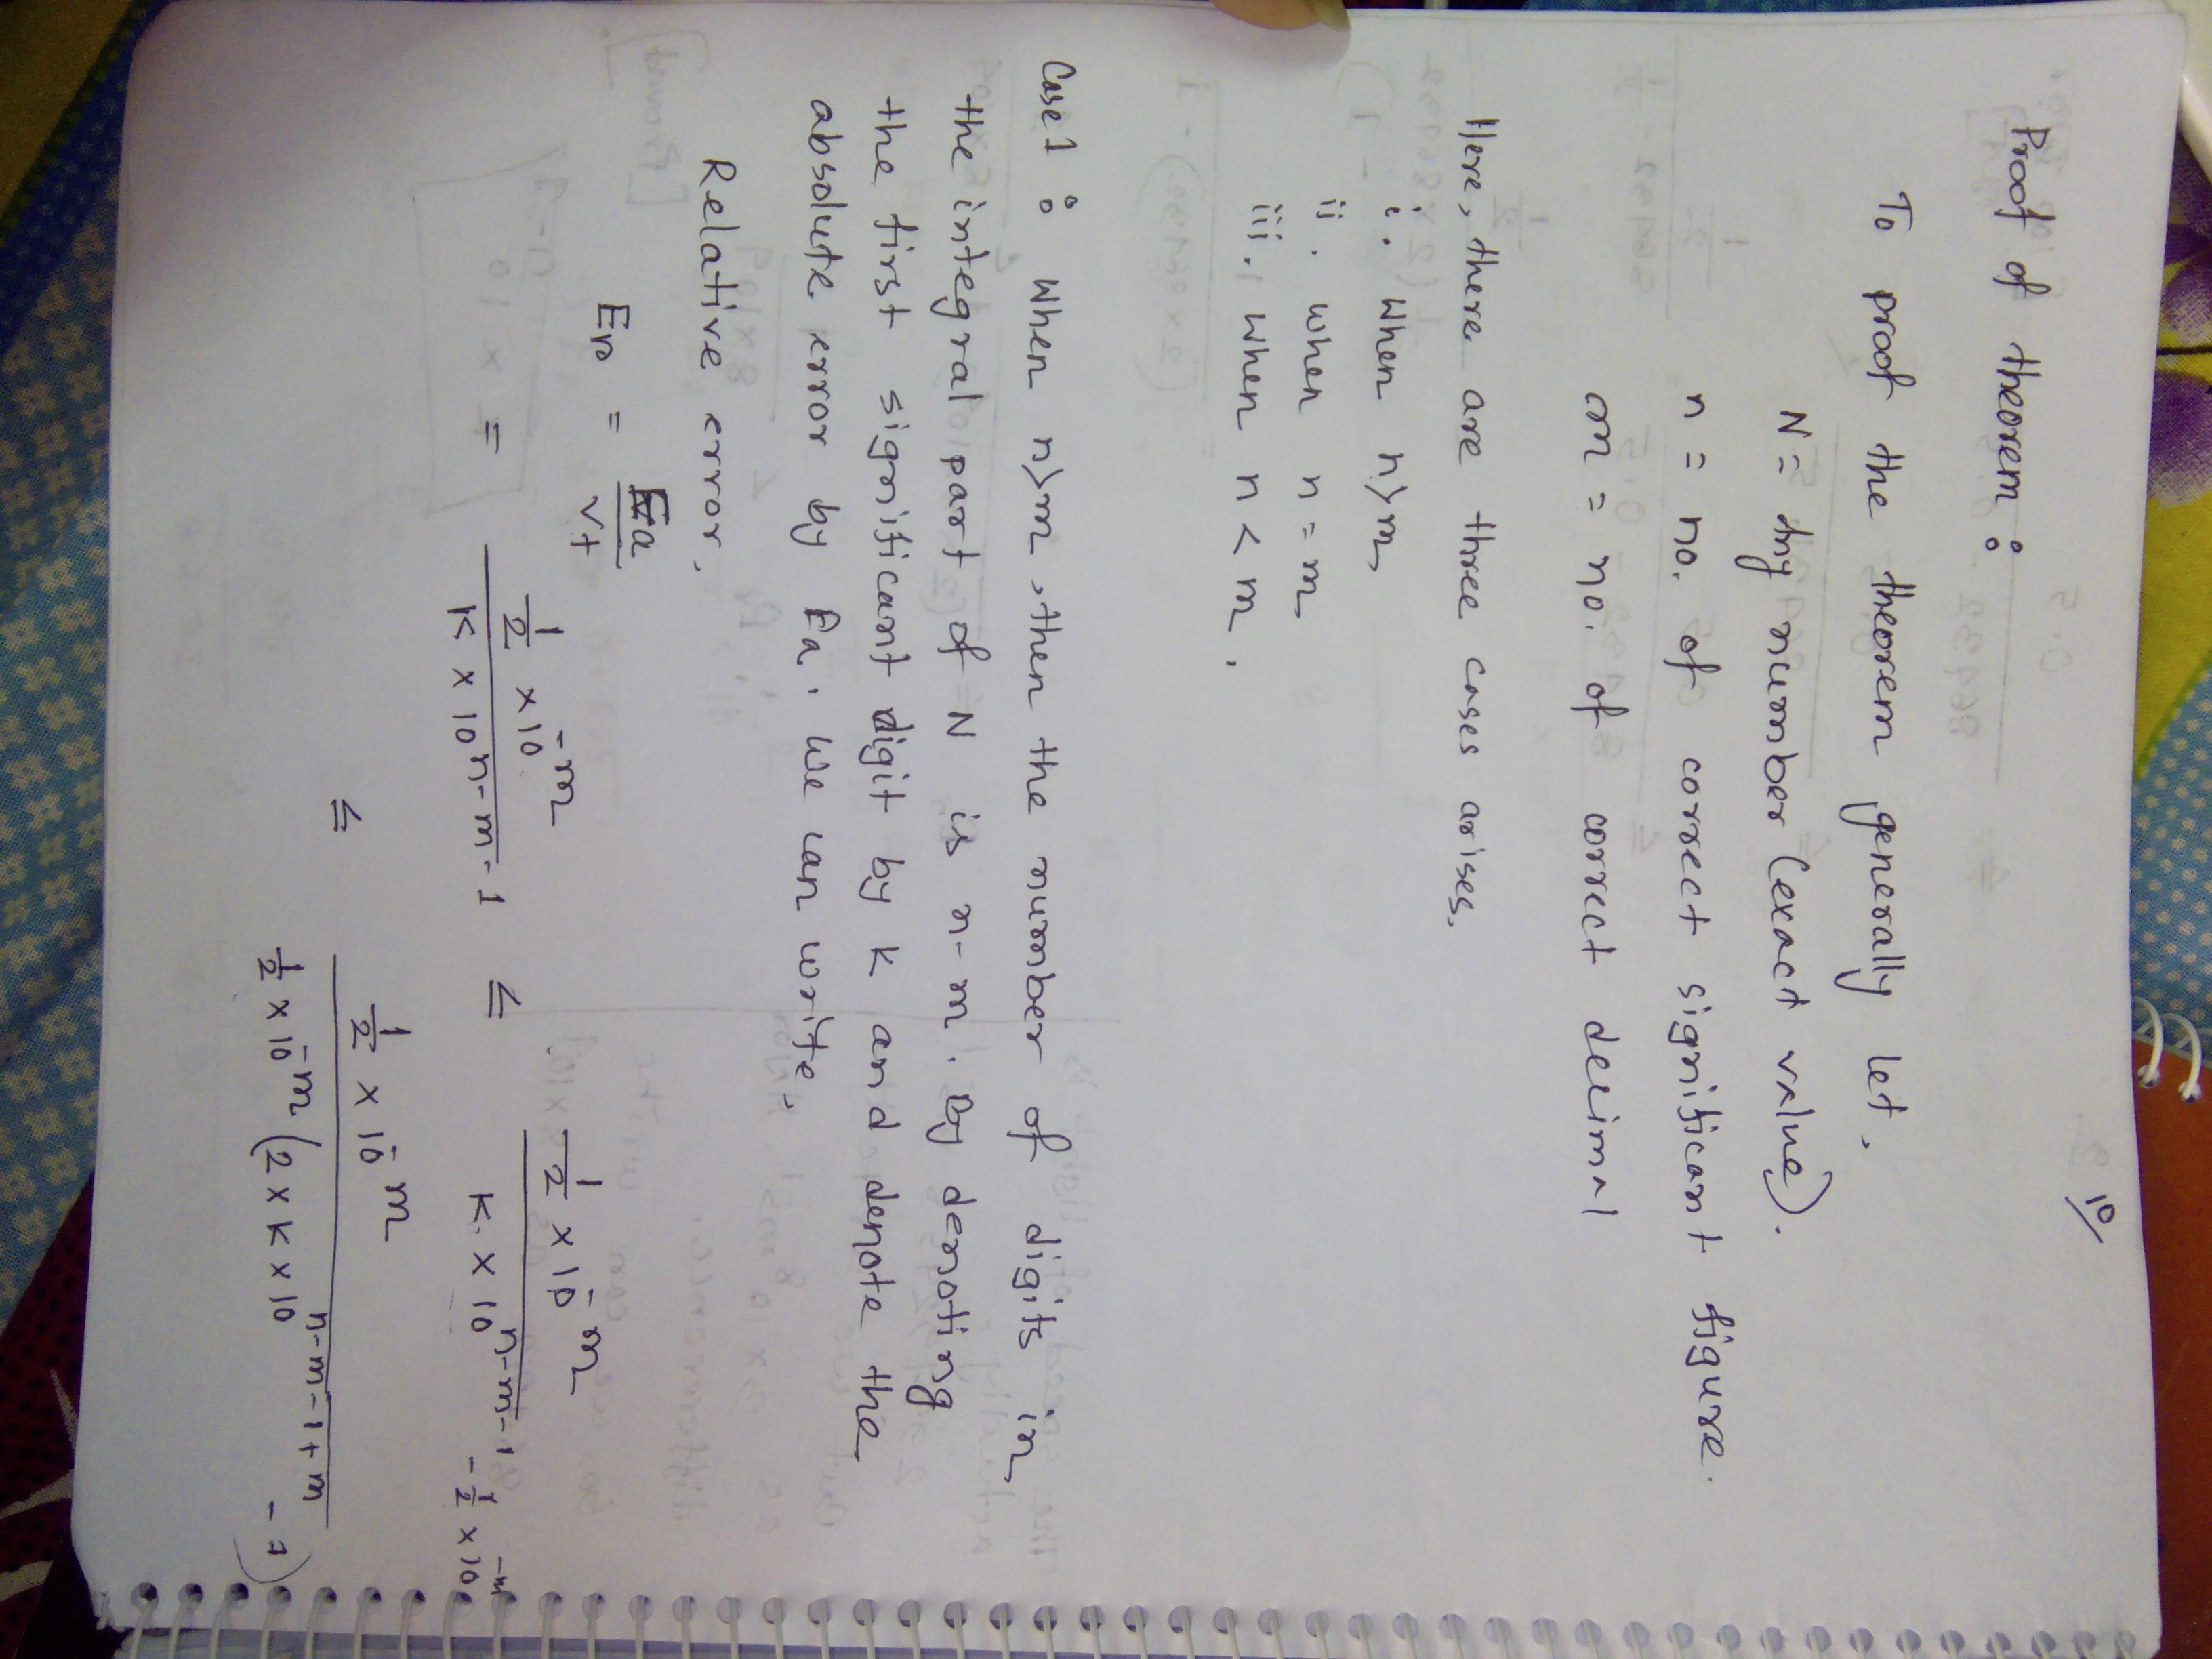 10/
Proof of theorem :
To proof the theorem generally let,
N = Any number (exact value).
n = no. of correct significant figure.
m = no. of correct decimal
Here, there are three cases arises,
i. when n>m,
ii. when n=m
iii. when n<m,
Case 1 : when n>m, then the number of digits in
the integral part of N is n-m. By denoting
the first significant digit by K and denote the
absolute error by Ea. We can write,
Relative error,
Er = Ea / Vt
= (1/2 × 10^-m) / (K × 10^n-m-1) ≤ (1/2 × 10^-m) / (K × 10^n-m-1 - 1/2 × 10^-m)
≤ (1/2 × 10^-m) / (1/2 × 10^-m (2 × K × 10^n-m-1+m - 1))